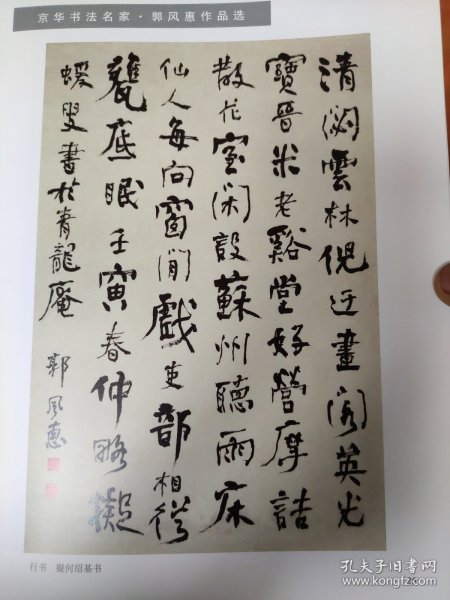 京华书法名家·郭风惠作品选
清閟雲林倪迂畫閣英光
寶晉米老谿堂好營摩詰
散花室閑設蘇州聽雨床
仙人每向窗間戲吏部相從
甕底眠壬寅春仲略擬
蝯叟書於青龍庵
郭風惠
行书 擬何绍基书
孔夫子旧书网